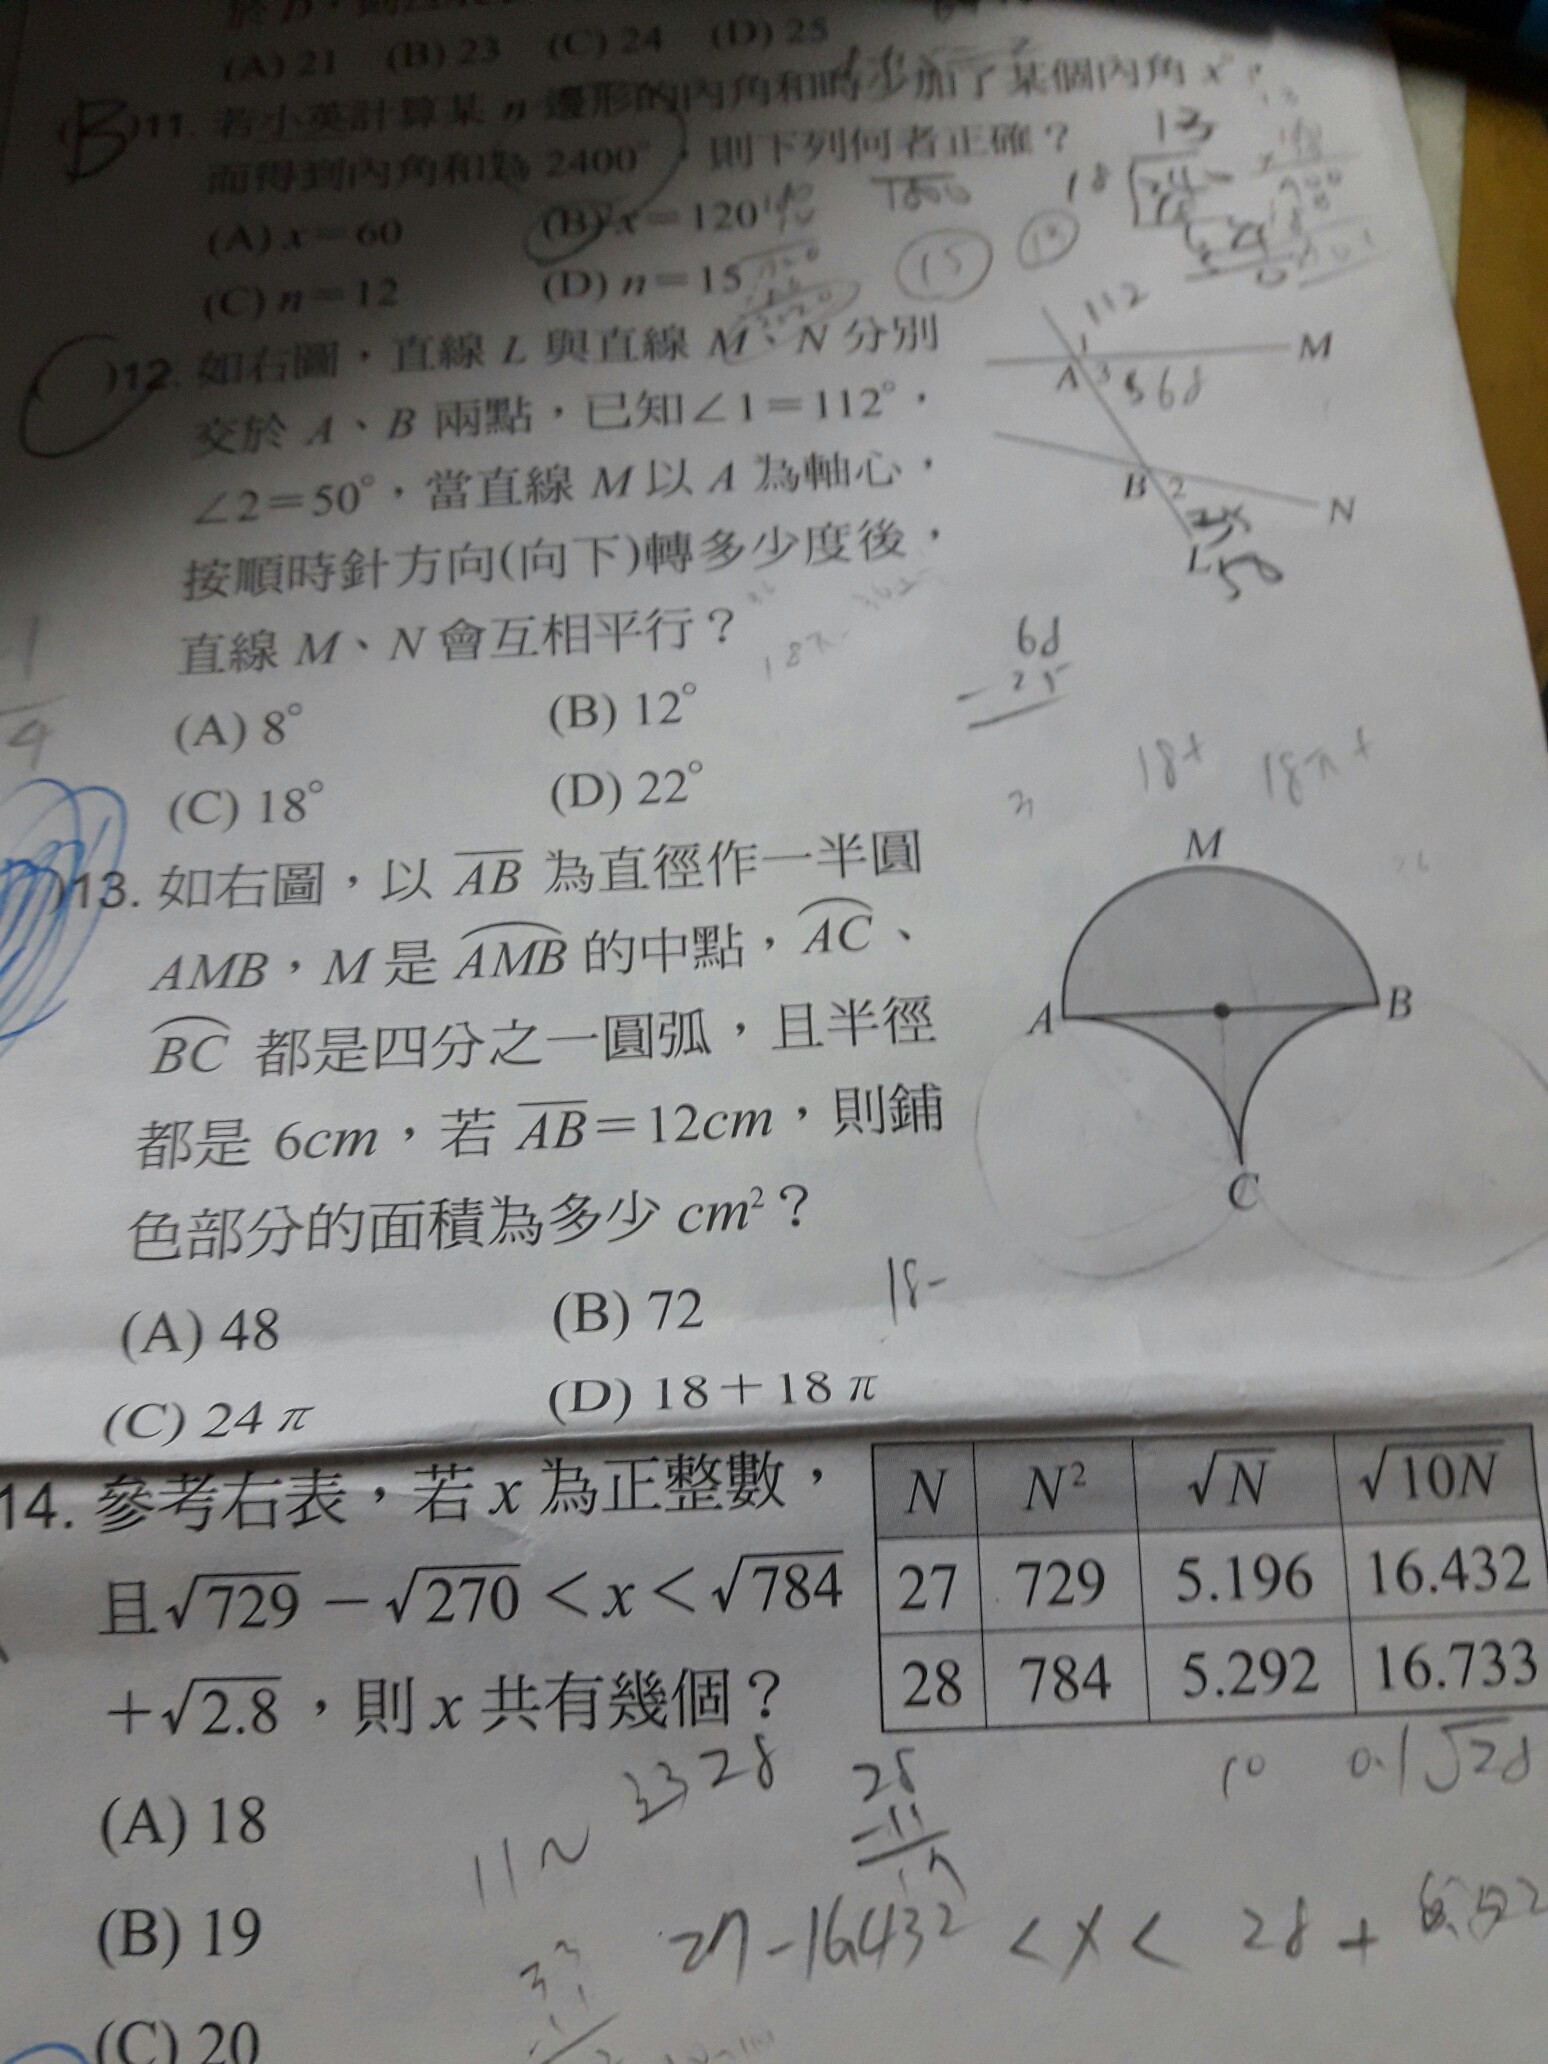 (A) 21 (B) 23 (C) 24 (D) 25
(B)11. 若小英計算某 n 邊形的內角和時少加了某個內角 x°,
而得到內角和為 2400°,則下列何者正確?
(A) x=60 (B) x=120
(C) n=12 (D) n=15
15
13
18
)12. 如右圖,直線 L 與直線 M、N 分別
交於 A、B 兩點,已知∠1=112°,
∠2=50°,當直線 M 以 A 為軸心,
按順時針方向(向下)轉多少度後,
直線 M、N 會互相平行?
(A) 8° (B) 12°
(C) 18° (D) 22°
112
1
M
A 3
68
B 2
N
L 50
68
18+ 18π+
)13. 如右圖,以 AB 為直徑作一半圓
AMB,M 是 AMB 的中點,AC、
BC 都是四分之一圓弧,且半徑
都是 6cm,若 AB=12cm,則鋪
色部分的面積為多少 cm²?
(A) 48 (B) 72
(C) 24π (D) 18+18π
M
A B
C
18-
14. 參考右表,若 x 為正整數,
且√729 - √270 < x < √784
+√2.8,則 x 共有幾個?
(A) 18
(B) 19
(C) 20
N N² √N √10N
27 729 5.196 16.432
28 784 5.292 16.733
33 28
11~
28
-11
10 0.1√28
27-16.432 < x < 28 +